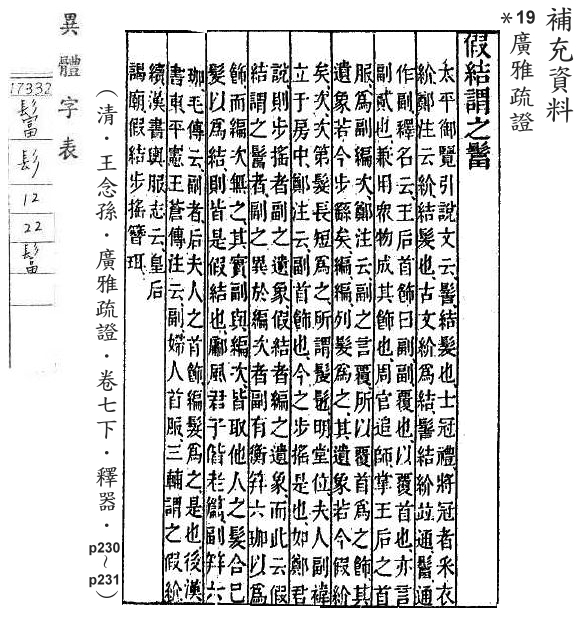 補充資料
*19 廣雅疏證
假結謂之䯽
太平御覽引說文云髻結髮也士冠禮將冠者采衣
紒鄭注云紒結髮也古文紒爲結髻結紒竝通䯽通
作副釋名云王后首飾曰副副覆也以覆首也亦言
副貳也兼用衆物成其飾也周官追師掌王后之首
服爲副編次鄭注云副之言覆所以覆首爲之飾其
遺象若今步繇矣編編列髮爲之其遺象若今假紒
矣次次第髮長短爲之所謂髲髢明堂位夫人副褘
立于房中鄭注云副首飾也今之步搖是也如鄭君
說則步搖者副之遺象假結者編之遺象而此云假
結謂之䯽者副之異於編次者副有衡筓六珈以爲
飾而編次無之其實副與編次皆取他人之髮合己
髮以爲結則皆是假結也鄘風君子偕老篇副筓六
珈毛傳云副者后夫人之首飾編髮爲之是也後漢
書東平憲王蒼傳注云副婦人首服三輔謂之假紒
續漢書輿服志云皇后
謁廟假結步搖簪珥
(清．王念孫．廣雅疏證．卷七下．釋器．p230~p231)
異體字表
17332
䯽
髟
12
22
䯽